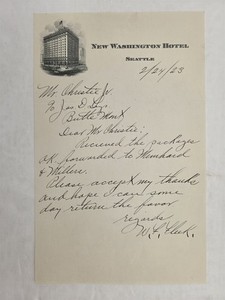 NEW WASHINGTON HOTEL
SEATTLE
2/24/23
Mr Christie Jr.
% Jas D Leys
Butte Mont
Dear Mr Christie:
Recieved the package
OK forwarded to Mennhard
& Millere.
Please accept my thanks
and hope I can some
day return the favor
regards
W. L.